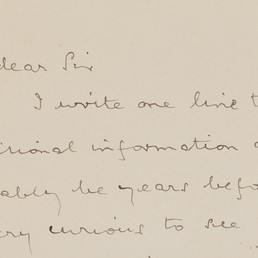 dear Sir
I write one line t
itional information
ably be years befo
ery curious to see